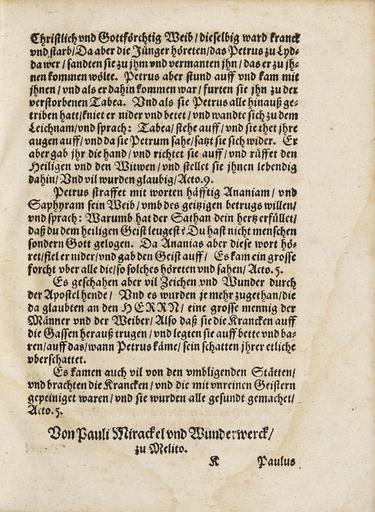 Christlich vnd Gottförchtig Weib / dieselbig ward kranck
vnd starb / Da aber die Jünger höreten / das Petrus zu Lyd-
da wer / sandten sie zu jhm vnd vermanten jhn / das er zu jh-
nen kommen wölte. Petrus aber stund auff vnd kam mit
jhnen / vnd als er dahin kommen war / furten sie jhn zu der
verstorbenen Tabea. Vnd als sie Petrus alle hinauß ge-
triben hatt / kniet er nider vnd betet / vnd wandte sich zu dem
Leichnam / vnd sprach: Tabea / stehe auff / vnd sie thet jhre
augen auff / vnd da sie Petrum sahe / satzt sie sich wider. Er
aber gab jhr die hand / vnd richtet sie auff / vnd rüffet den
Heiligen vnd den Witwen / vnd stellet sie jhnen lebendig
dahin / Vnd vil wurden glaubig / Acto. 9.
Petrus straffet mit worten häfftig Ananiam / vnd
Saphyram sein Weib / vmb des geitzigen betrugs willen /
vnd sprach: Warumb hat der Sathan dein hertz erfüllet /
daß du dem heiligen Geist leugest? Du hast nicht menschen
sondern Gott gelogen. Da Ananias aber diese wort hö-
ret / fiel er nider / vnd gab den Geist auff / Es kam ein grosse
forcht vber alle die / so solches höreten vnd sahen / Acto. 5.
Es geschahen aber vil Zeichen vnd Wunder durch
der Apostel hende / Vnd es wurden je mehr zugethan / die
da glaubten an den HERRN / eine grosse mennig der
Männer vnd der Weiber / Also daß sie die Krancken auff
die Gassen herauß trugen / vnd legten sie auff bette vnd ba-
ren / auff das / wann Petrus käme / sein schatten jhrer etliche
vberschattet.
Es kamen auch vil von den vmbligenden Stätten /
vnd brachten die Krancken / vnd die mit vnreinen Geistern
gepeiniget waren / vnd sie wurden alle gesundt gemachet /
Acto. 5.
Von Pauli Mirackel vnd Wunderwerck /
zu Melito.
K Paulus